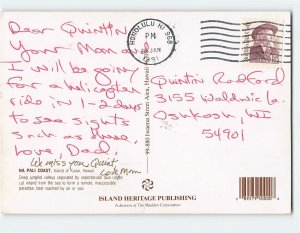 Dear Quintin
Your Mom and
I will be going
for a helicopter
ride in 1-2 days
to see sights
such as these.
Love, Dad.
We miss you Quint
Love Mom
HONOLULU HI 968
PM
JAN
1991
Quintin Radford
3155 Waldwic La.
Oshkosh, WI
54901
NA PALI COAST, Island of Kauai, Hawaii
Deep unique valleys separated by spectacular sea ridges
cut inland from the sea to form a remote, inaccessible
paradise best reached by air or sea.
99-880 Iwaena Street Aiea, Hawaii
ISLAND HERITAGE PUBLISHING
A division of The Madden Corporation